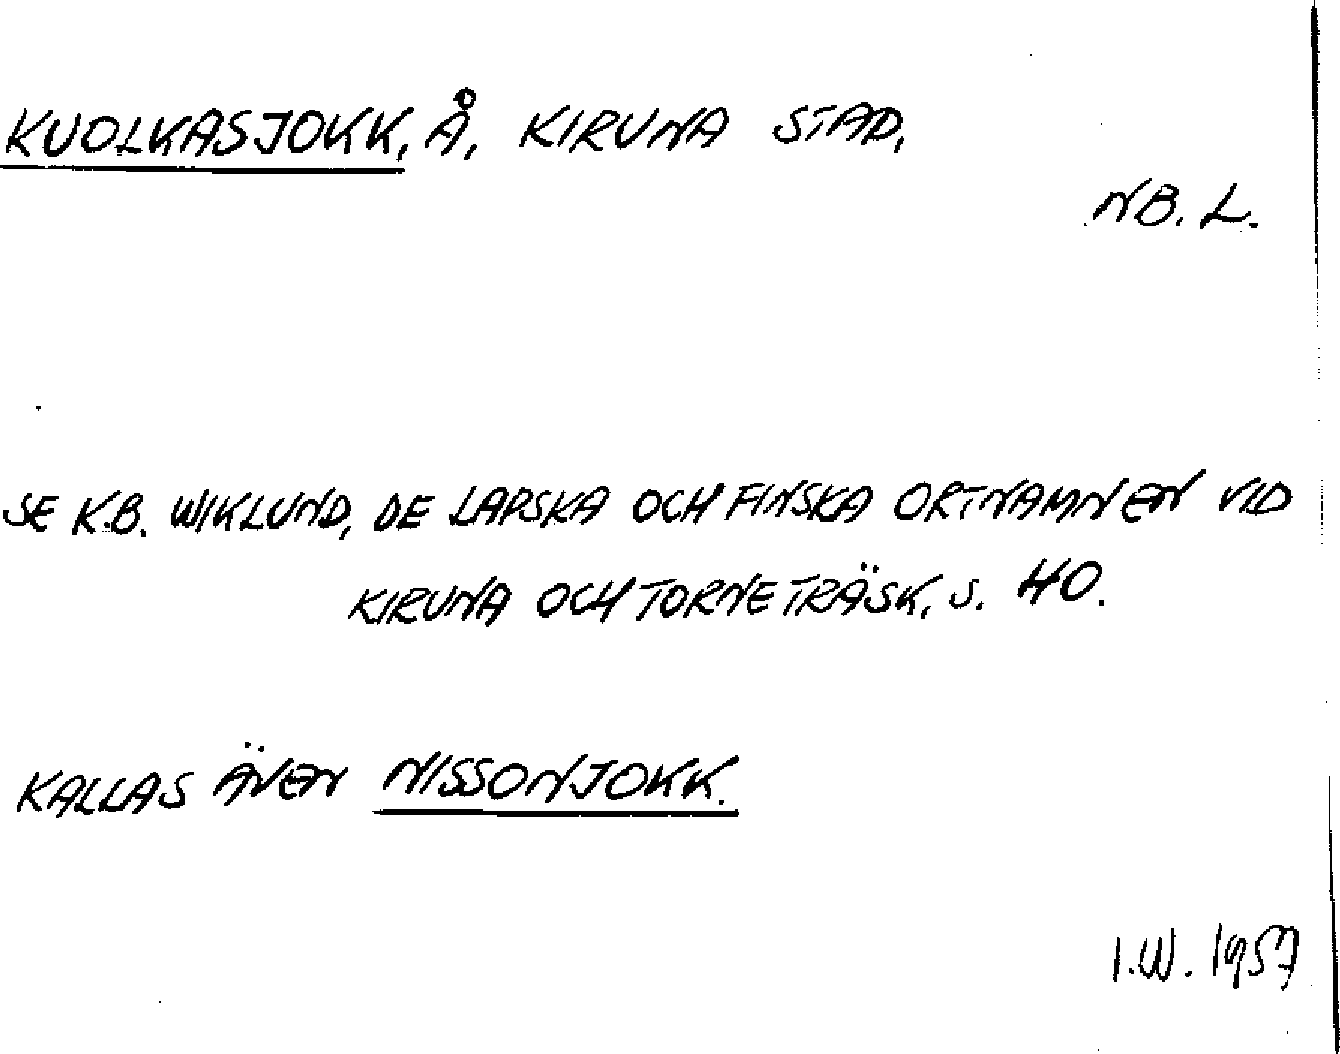 KUOLKASJOKK, Å, KIRUNA STAD,
NB. L.
SE K.B. WIKLUND, DE LAPSKA OCH FINSKA ORTNAMNEN VID
KIRUNA OCH TORNETRÄSK, S. 40.
KALLAS ÄVEN NISSONJOKK.
I.W. 1957